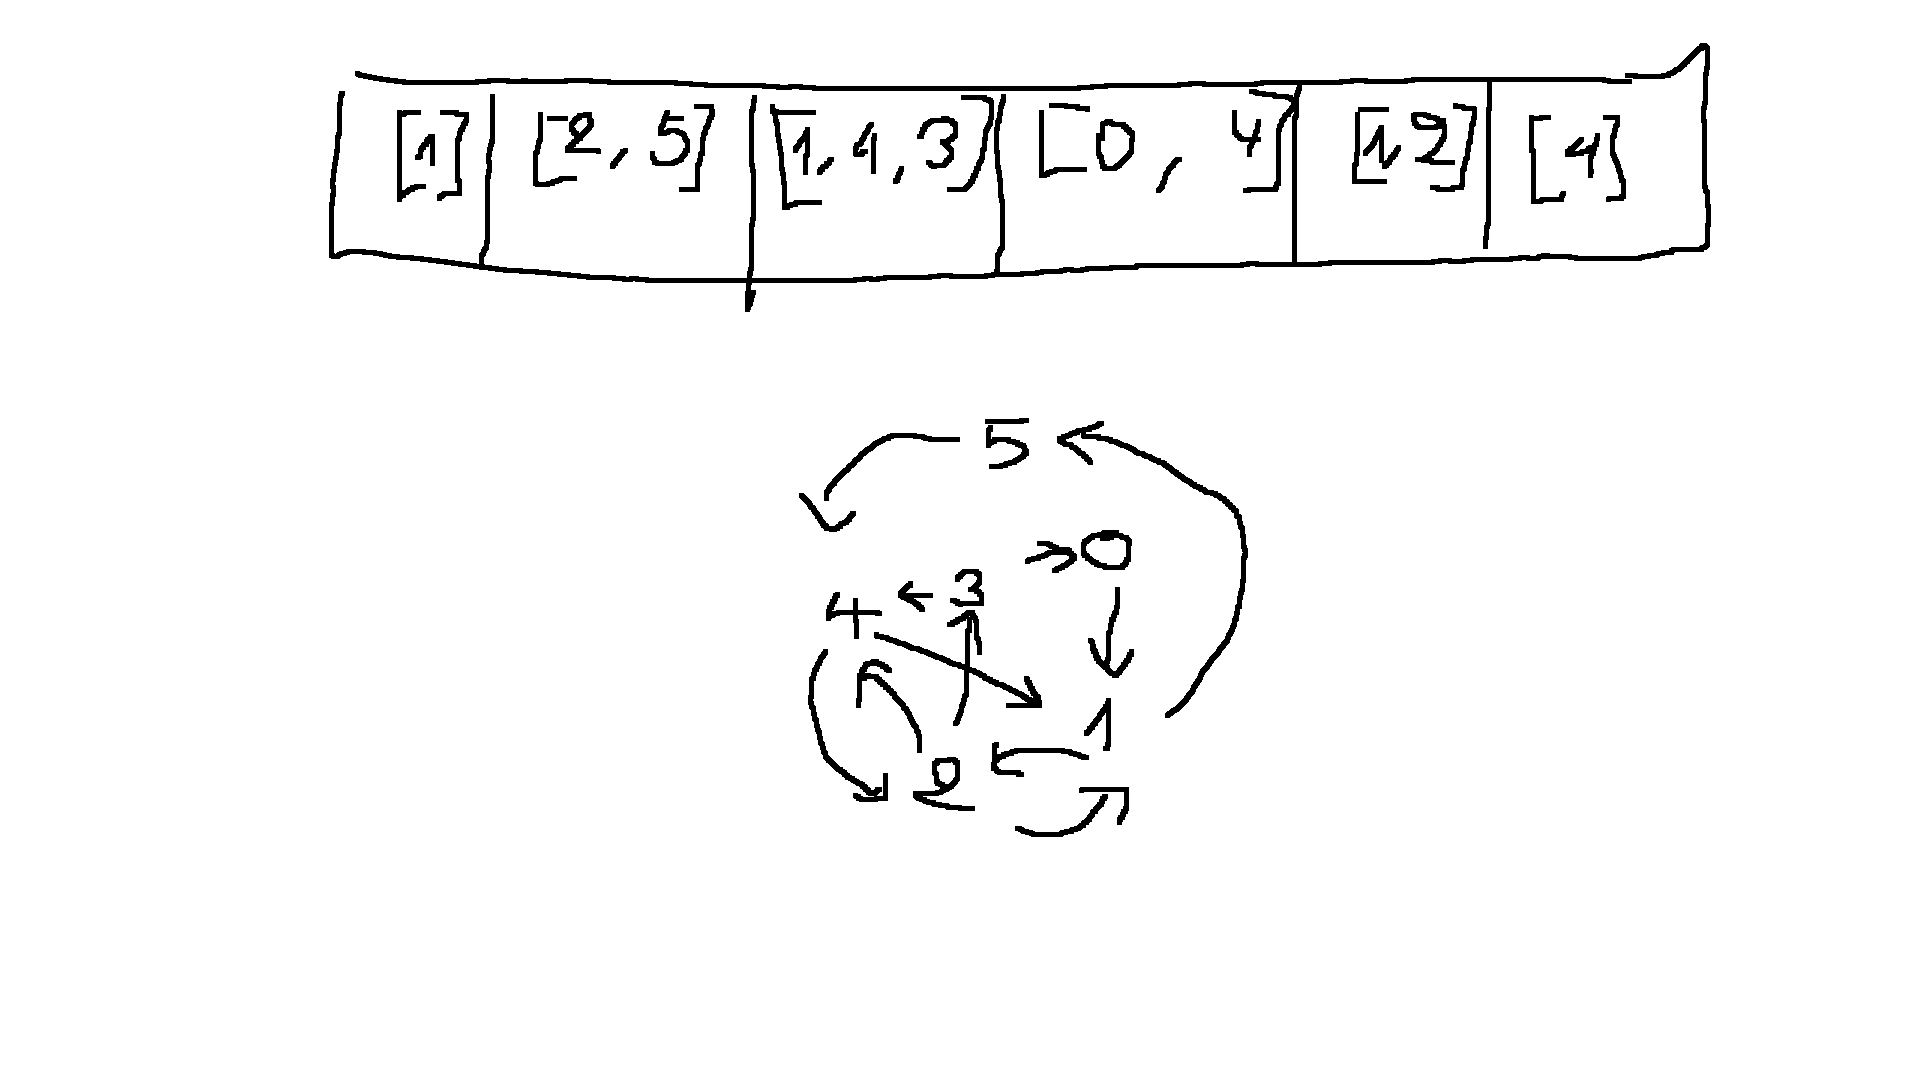 [1] [2, 5] [1, 4, 3] [0, 4] [1, 2] [4]
5
0
3
4
1
2